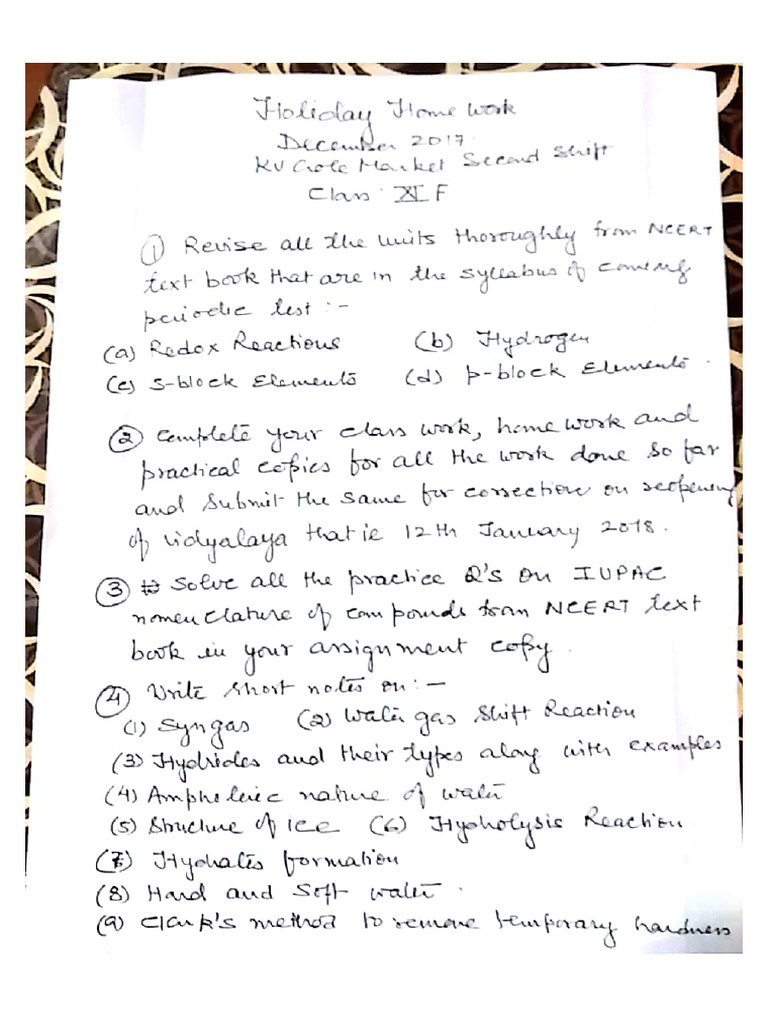 Holiday Home Work
December 2017.
KV Gole Market Second Shift
Class XI F
① Revise all the units thoroughly from NCERT
text book that are in the syllabus of coming
periodic test :-
(a) Redox Reactions (b) Hydrogen
(c) s-block Elements (d) p-block Elements.
② Complete your class work, home work and
practical copies for all the work done so far
and submit the same for correction on reopening
of vidyalaya that is 12th January 2018.
③ Solve all the practice Q's on IUPAC
nomenclature of compounds from NCERT text
book in your assignment copy.
④ Write short notes on :-
(1) Syngas (2) Water gas shift Reaction
(3) Hydrides and their types along with examples
(4) Ampholeric nature of water
(5) Structure of ice (6) Hydrolysis Reaction
(7) Hydrates formation
(8) Hard and Soft water.
(9) Clark's method to remove temporary hardness